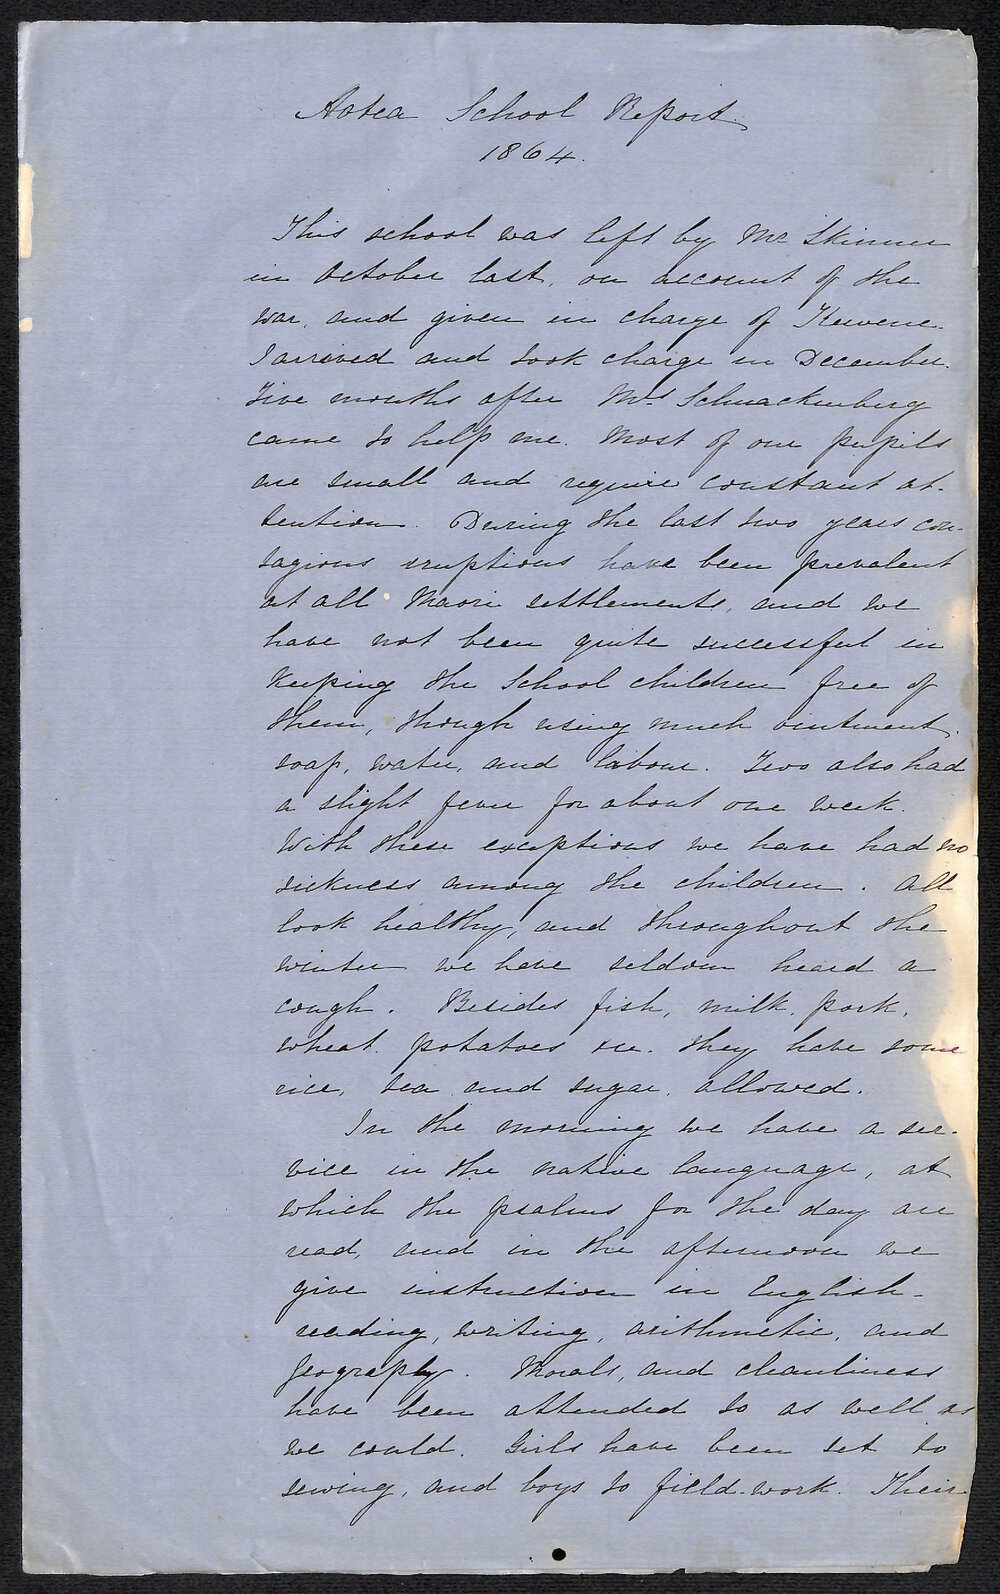 Aotea School Report.
1864.
This school was left by Mr Skinner
in October last, on account of the
war, and given in charge of Kewene.
I arrived and took charge in December.
Five months after Mrs Schnackenberg
came to help me. Most of our pupils
are small and require constant at-
tention. During the last two years con-
tagious eruptions have been prevalent
at all Maori settlements, and we
have not been quite successful in
keeping the School children free of
them, though using much ointment,
soap, water, and labour. Two also had
a slight fever for about one week.
With these exceptions we have had no
sickness among the children. All
look healthy, and throughout the
winter we have seldom heard a
cough. Besides fish, milk, pork,
wheat, potatoes &c. they have some
rice, tea and sugar allowed.
In the morning we have a ser-
vice in the native language, at
which the psalms for the day are
read, and in the afternoon we
give instruction in English-
reading, writing, arithmetic, and
geograply. Morals, and cleanliness
have been attended to as well as
we could. Girls have been set to
sewing, and boys to field-work. Their